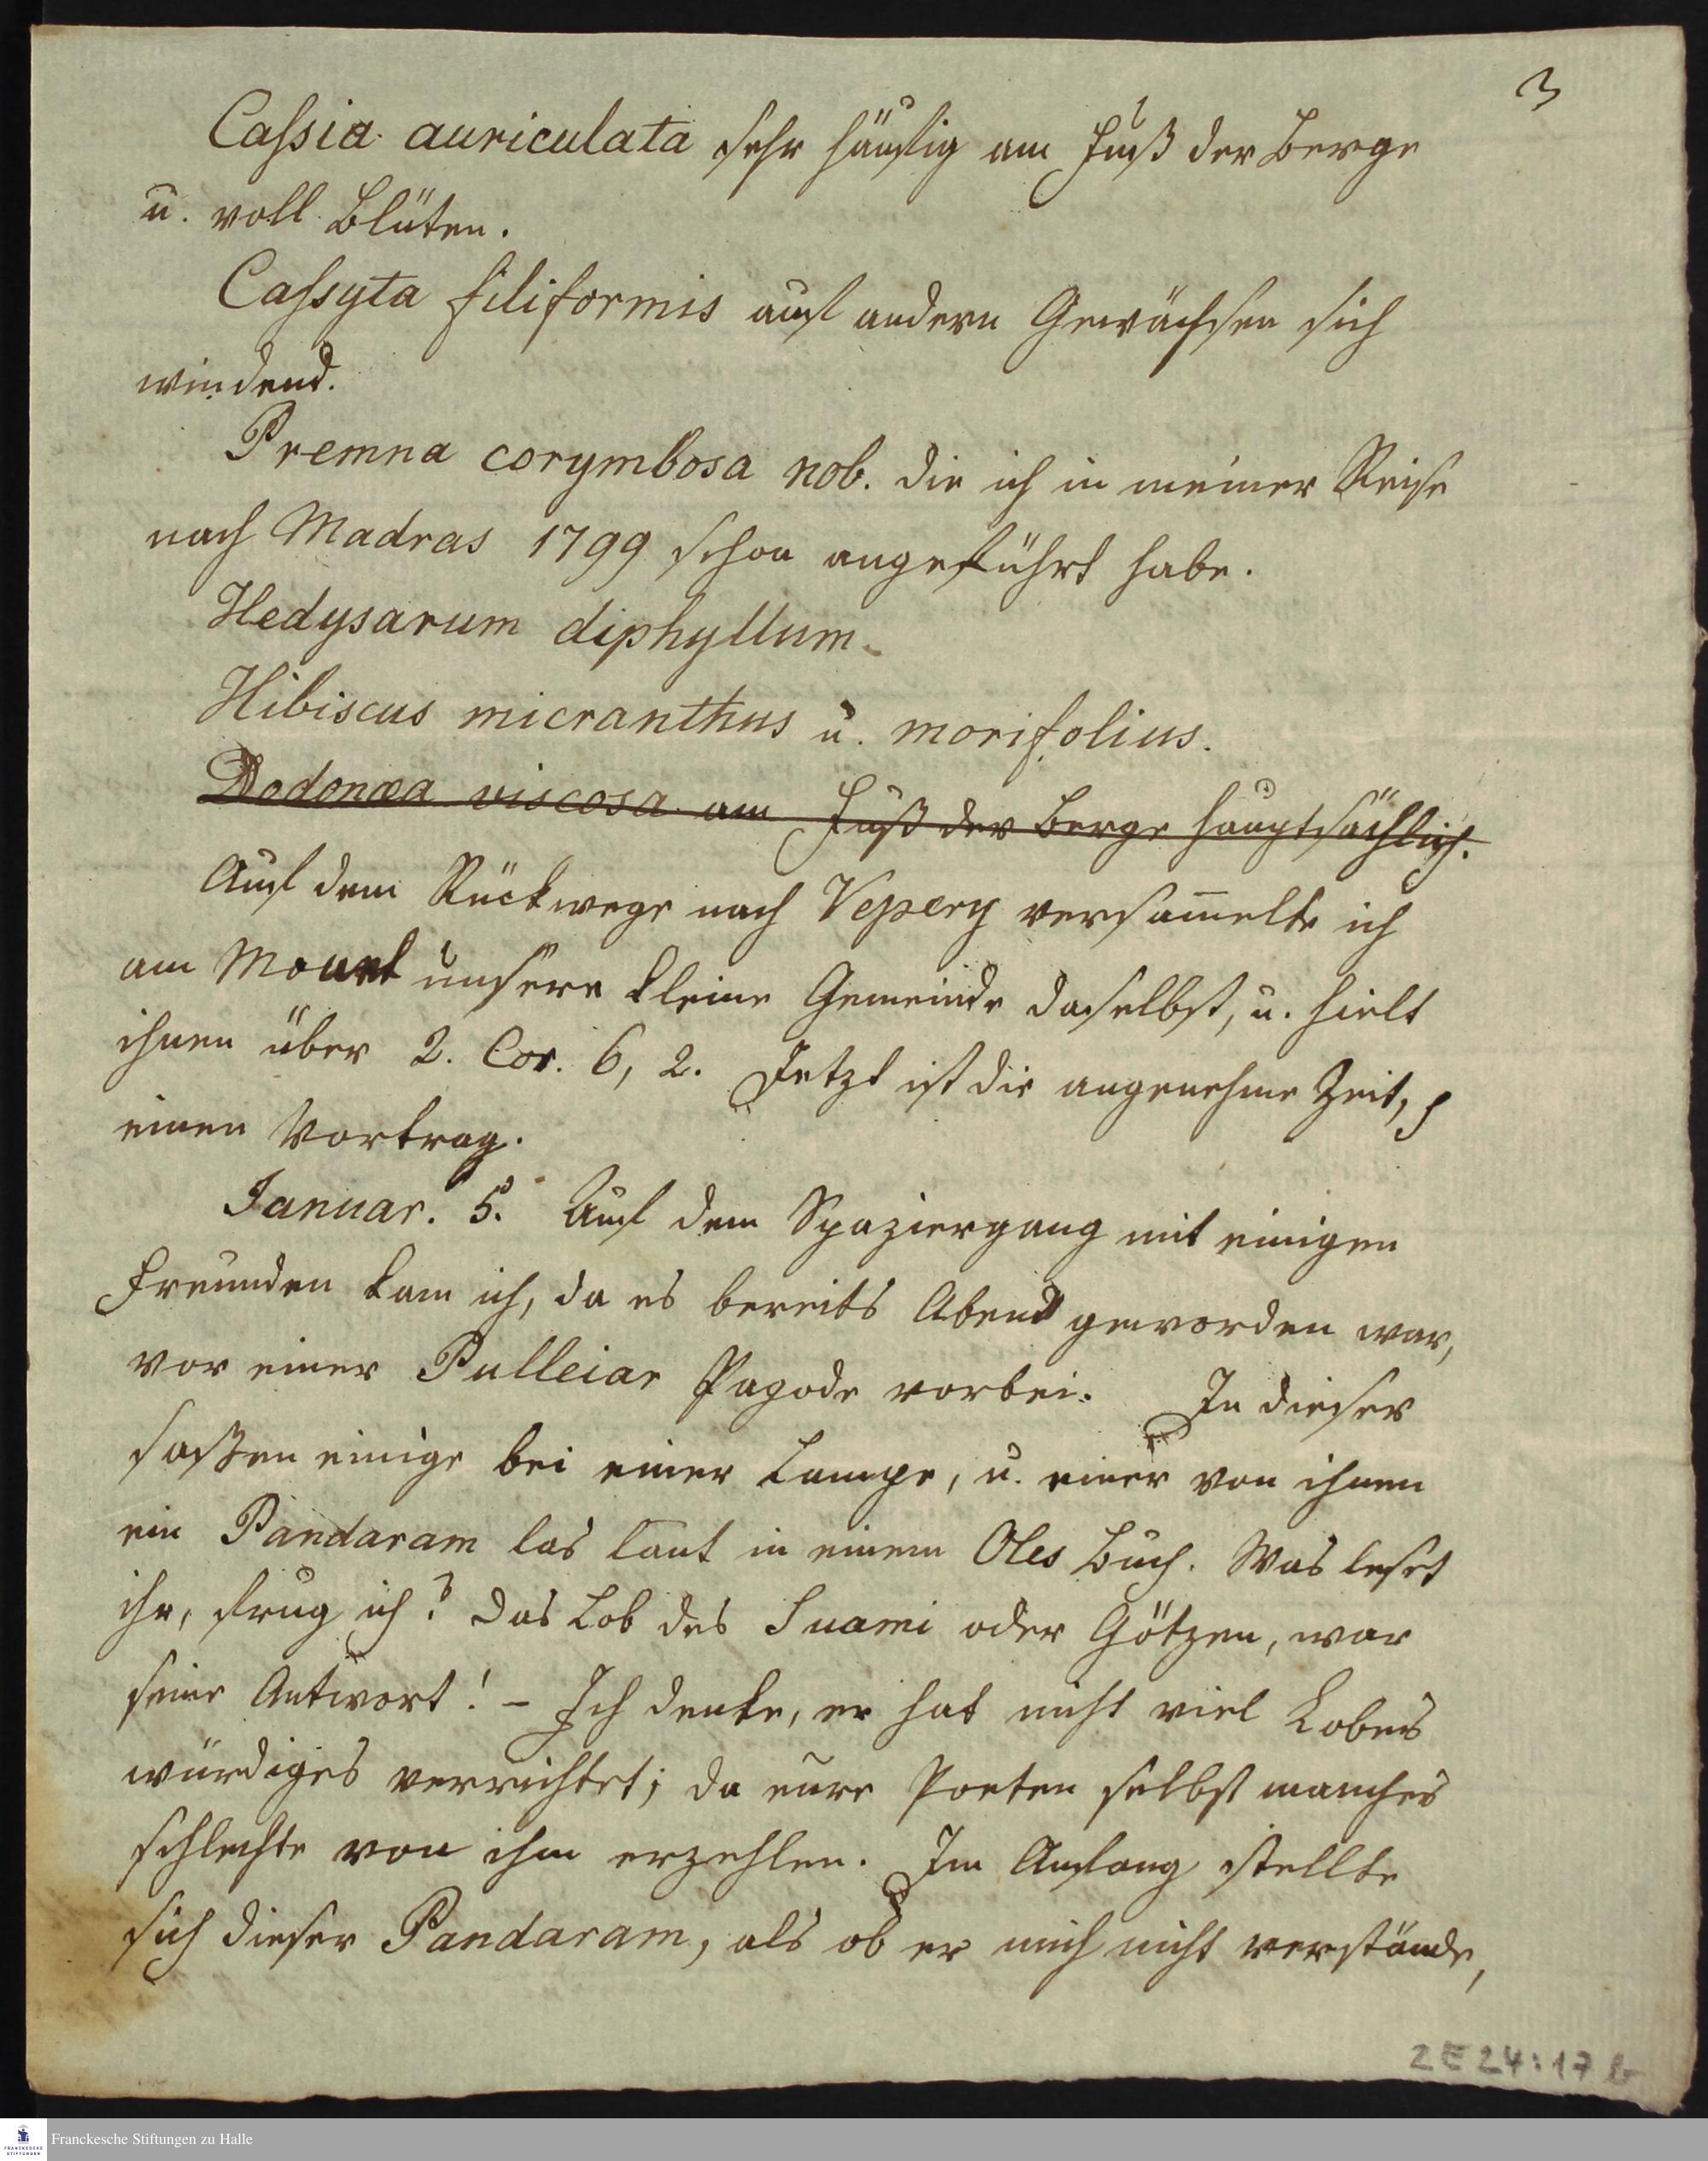 3
Caſsia auriculata sehr häufig am Fuß der Berge
u. voll Blüten.
Caſsyta filiformis auf andern Gewächsen sich
windend.
Premna corymbosa nob. die ich in meiner Reise
nach Madras 1799 schon angeführt habe.
Hedysarum diphyllum.
Hibiscus micranthus u. morifolius.
Dodonæa viscosa am Fuß der Berge hauptsächlich.
Auf dem Rückwege nach Vepery versam̄elte ich
am Mount unsere kleine Gemeinde daselbst, u. hielt
ihnen über 2. Cor. 6, 2. Jetzt ist die angenehme Zeit,
einen Vortrag.
Januar. 5. Auf dem Spaziergang mit einigen
Freunden kam ich, da es bereits Abend geworden war,
vor einer Pulleiar Pagode vorbei. In dieser
saßen einige bei einer Lampe, u. einer von ihnen
ein Pandaram las laut in einem Oles Buch. Was leset
ihr, frug ich? das Lob des Suami oder Götzen, war
seine Antwort! – Ich denke, er hat nicht viel Lobens
würdiges verrichtet; da eure Poeten selbst manches
schlechte von ihm erzehlen. Im Anfang stellte
sich dieser Pandaram, als ob er mich nicht verstände,
2E24:17 b
Franckesche Stiftungen zu Halle
FRANCKESCHE
STIFTUNGEN